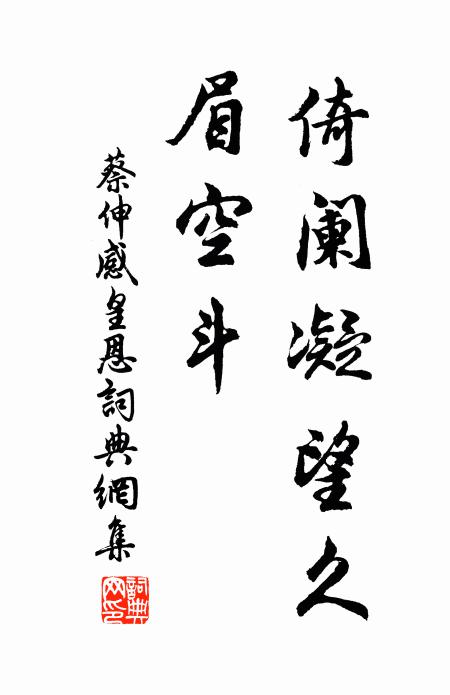 倚阑凝望久
眉空斗
蔡伸感皇恩詞典網集
詞典网印